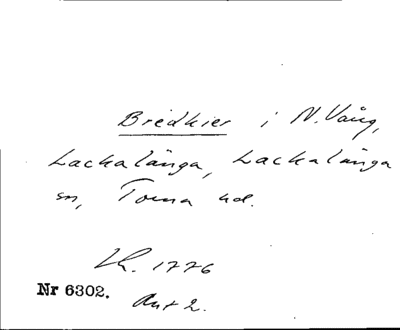 Bredkier i N. Vång,
Lackalänga, Lackalänga
sn, Torna hd.
Lh. 1776
Nr 6302.
Akt 2.